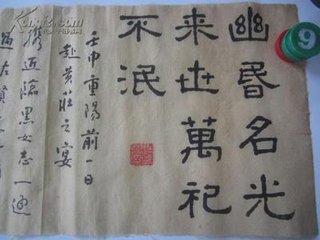 幽昏名光
来世萬祀
不泯
壬申重陽前一日
赴黄莊之宴
携近臨黑女志一通
9